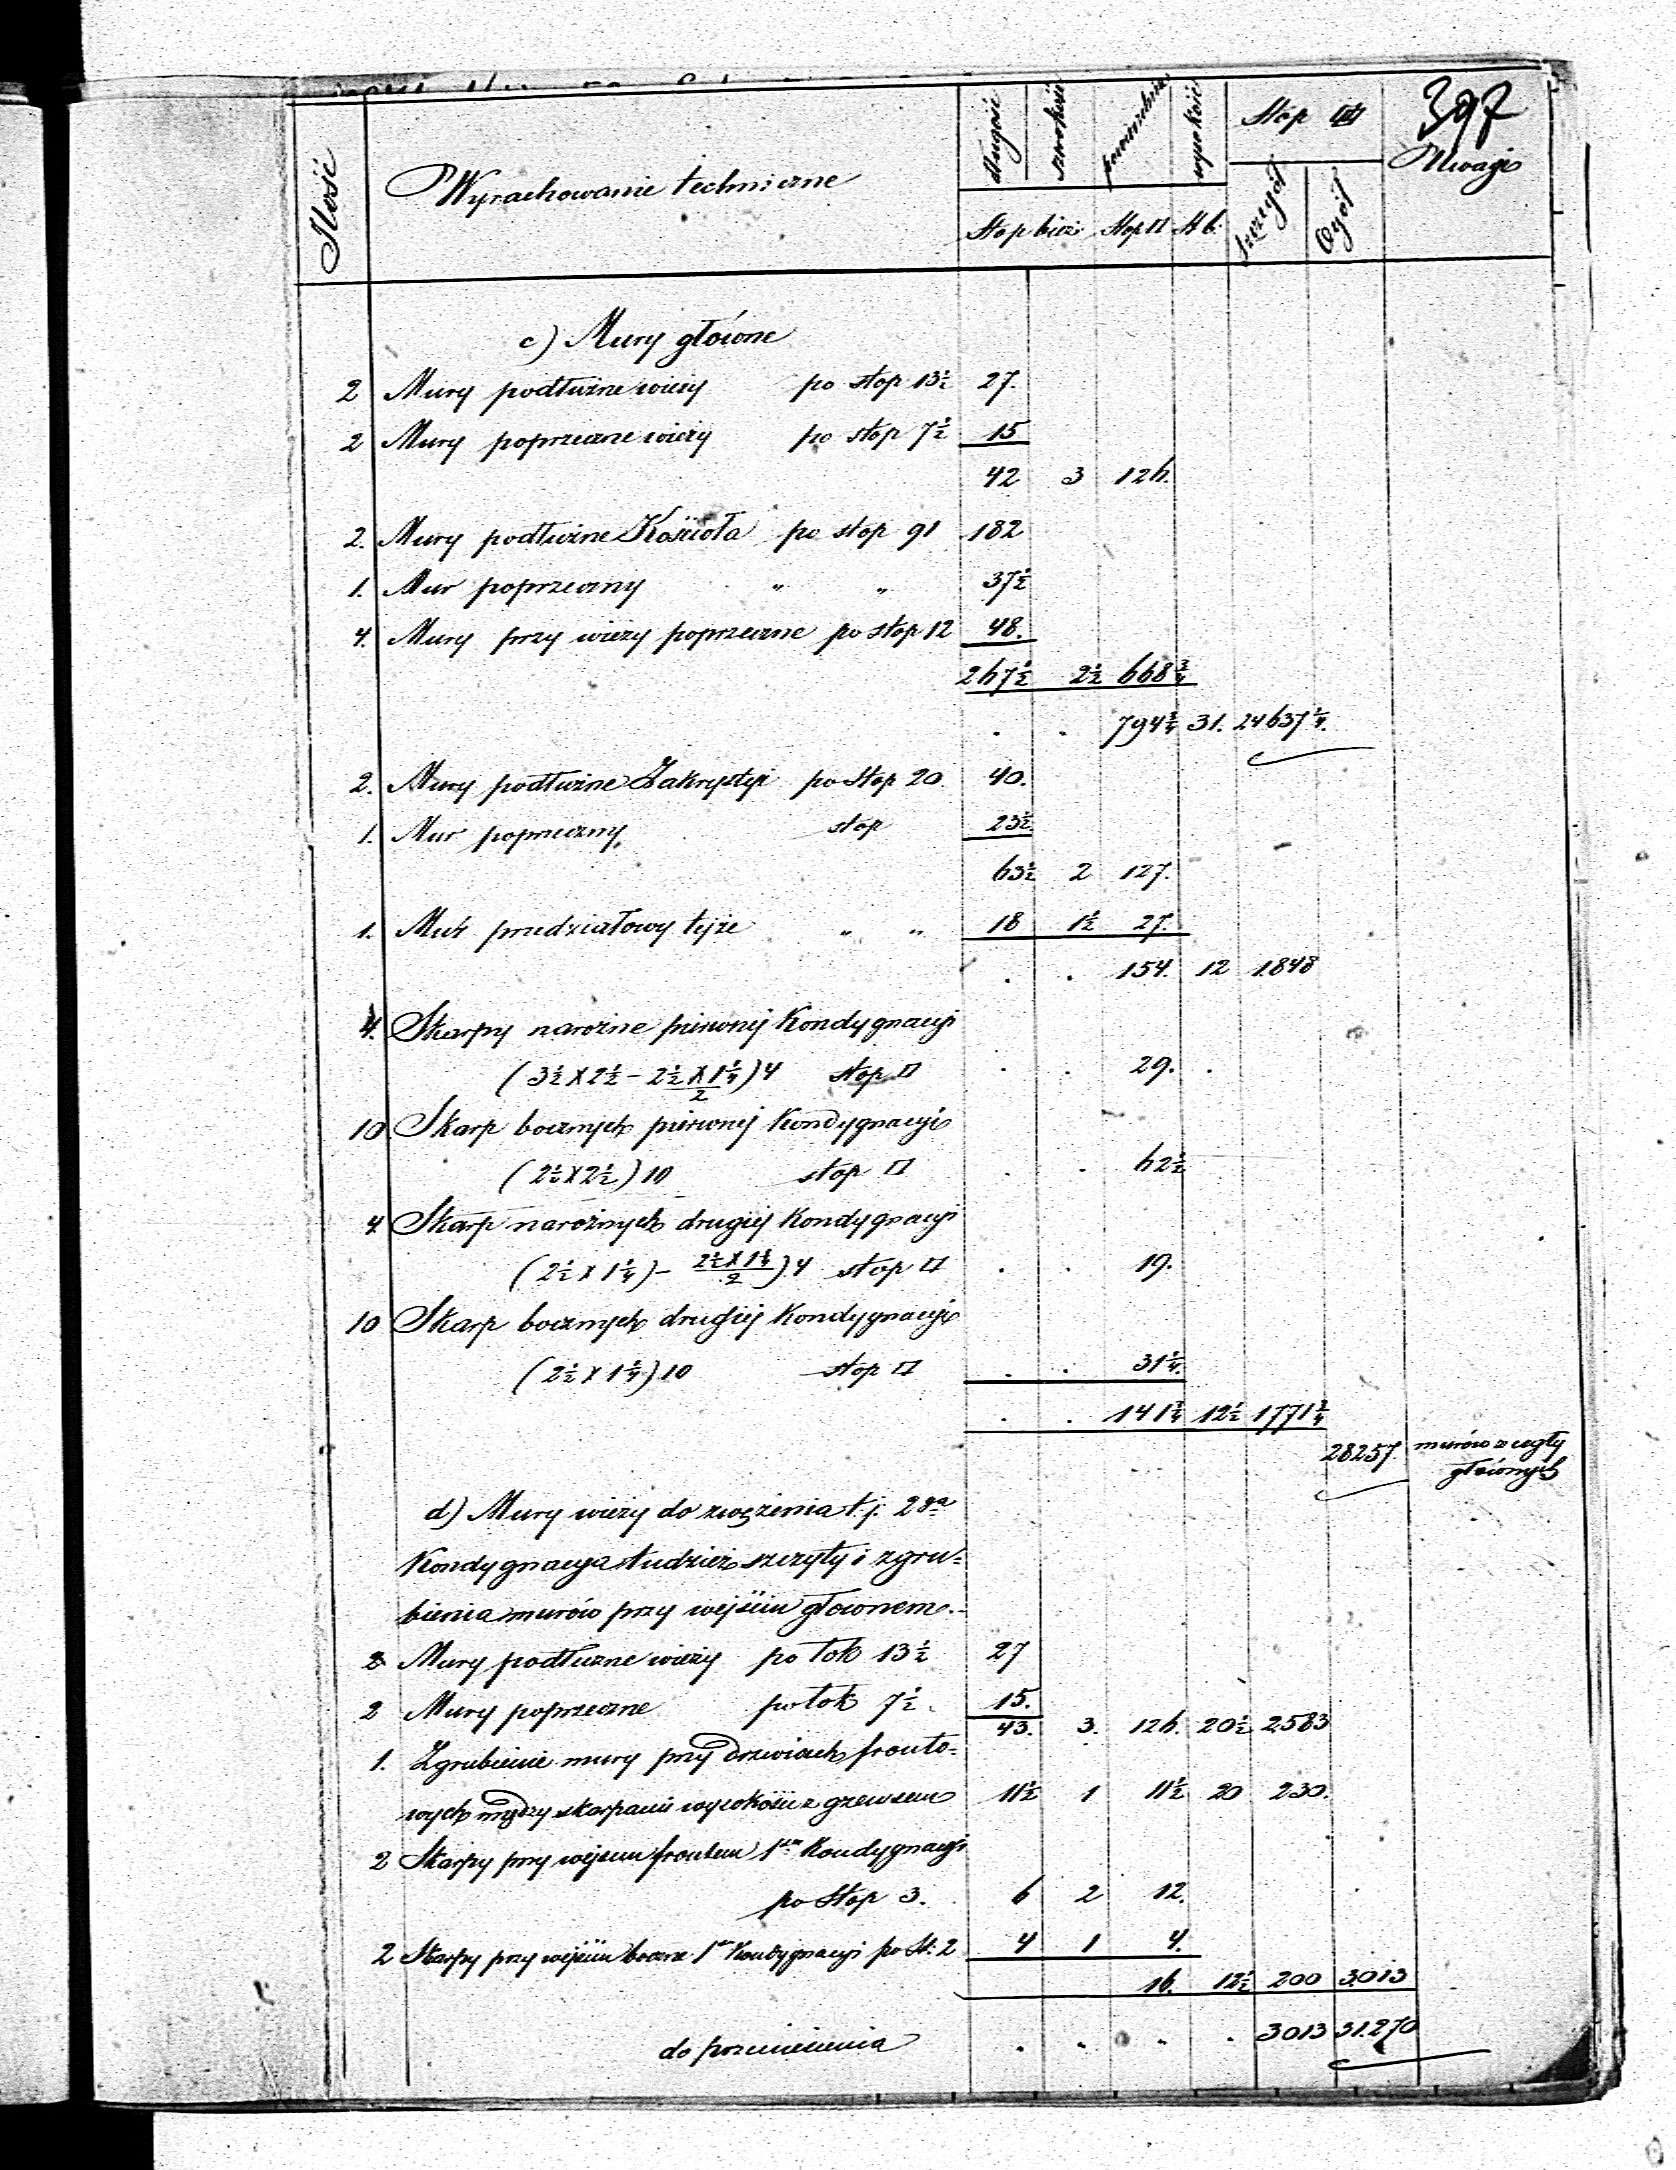 397
Ilość
Wyrachowanie techniczne
długość szerokość powierzchnia wysokość
Stóp bież. Stop □ St b.
Stóp
szczegół Ogół
Uwagi
c) Mury główne
2 Mury podłużne wieży po stop 13½ 27.
2 Mury poprzeczne wieży po stop 7½ 15
42 3 126.
2. Mury podłużne Kościoła po stop 91 182
1. Mur poprzeczny " " 37½
4. Mury przy wieży poprzeczne po stop 12 48.
267½ 2½ 668¾
. . 794¾ 31. 24637¼.
2. Mury podłużne Zakrystyi po Stop 20 40.
1. Mur poprzeczny stop 23½
63½ 2 127.
1. Mur przedziałowy tejże " " 18 1½ 27.
. . 154. 12 1848
4. Skarpy narożne pierwnej Kondygnacyi
(3½ X 2½ - 2½ X 1¼/2) 4 stop □ . . 29. .
10 Skarp bocznych pierwnej Kondygnacyi
(2½ X 2½) 10 stop □ . . 62½
4 Skarp narożnych drugiej Kondygnacyi
(2½ X 1¼) - 2½ X 1¼/2) 4 stop □ . . 19.
10 Skarp bocznych drugiej Kondygnacyi
(2½ X 1¼) 10 stop □ . . 31¼.
. . 141¾ 12½ 1771¾
28257. murów z cegły
głównych
d) Mury wieży do zwężenia t. j. 2ga
Kondygnacya tudzież szczyty i zgru=
bienia murów przy wejściu głownem.-
2 Mury podłużne wieży po łok 13½ 27
2 Mury poprzeczne po łok 7½ 15.
43. 3. 126. 20½ 2583
1. Zgrubienie mury przy drzwiach fronto=
wych między skarpami wysokości z gzemsem 11½ 1 11½ 20 230.
2 Skarpy przy wejściu frontem 1ej Kondygnacyi
po Stop 3. 6 2 12.
2 Skarpy przy wejściu boczne 1ej Kondygnacyi po St: 2 4 1 4.
16. 12½ 200 3013
do przeniesienia . . . . 3013 31.270